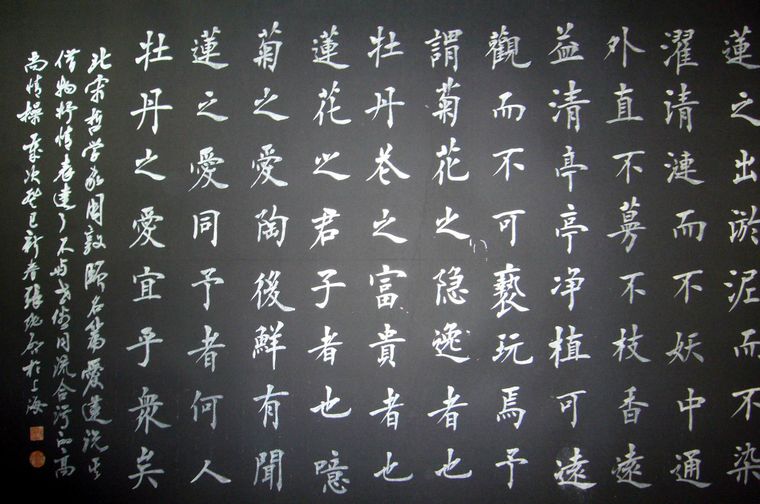 蓮之出淤泥而不染
濯清漣而不妖中通
外直不蔓不枝香遠
益清亭亭净植可遠
觀而不可褻玩焉予
謂菊花之隐逸者也
牡丹花之富貴者也
蓮花之君子者也噫
菊之愛陶後鮮有聞
蓮之愛同予者何人
牡丹之愛宜乎衆矣
北宋哲学家周敦颐名篇愛蓮说
借物抒情表達了不與世俗同流合污的高
尚情操 歲次癸巳新春張於上海